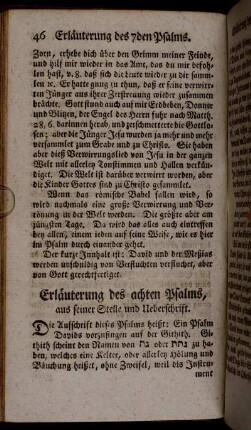 46 Erläuterung des 7den Psalms.
Zorn, erhebe dich über den Grimm meiner Feinde,
und hilf mir wieder in das Amt, das du mir befoh-
len hast, v. 8. daß sich die Leute wieder zu dir samm-
len ꝛc. Er hatte gnung zu thun, daß er seine verwirr-
ten Jünger aus ihrer Zerstreuung wieder zusammen
brächte. Gott stund auch auf mit Erdbeben, Donner
und Blitzen, der Engel des Herrn fuhr nach Matth.
28, 6. darinnen herab, und zerschmetterte die Gottlo-
sen; aber die Jünger Jesu wurden zu mehr und mehr
versammlet zum Grabe und zu Christo. Sie haben
aber dieß Verwirrungslied von Jesu in der ganzen
Welt mit allerley Tonstimmen und Hallen verkün-
diget. Die Welt ist darüber verwirrt worden, aber
die Kinder Gottes sind zu Christo gesammlet.
Wenn das römische Babel fallen wird, so
wird nochmals eine große Verwirrung und Ver-
störung in der Welt werden. Die größte aber am
jüngsten Tage. Da wird das alles auch eintreffen
bey allen, einem jeden auf seine Weise, wie es hier
im Psalm durch einander gehet.
Der kurze Innhalt ist: David und der Meßias
werden unschuldig von Verfluchten verfluchet, aber
von Gott gerechtfertiget.
Erläuterung des achten Psalms,
aus seiner Stelle und Ueberschrift.
Die Aufschrift dieses Psalms heißt: Ein Psalm
Davids vorzusingen auf der Githith. Gi-
thith scheint den Namen von גת oder גתת zu ha-
ben, welches eine Kelter, oder allerley Hölung und
Bauchung heißet, ohne Zweifel, weil dis Instru-
ment